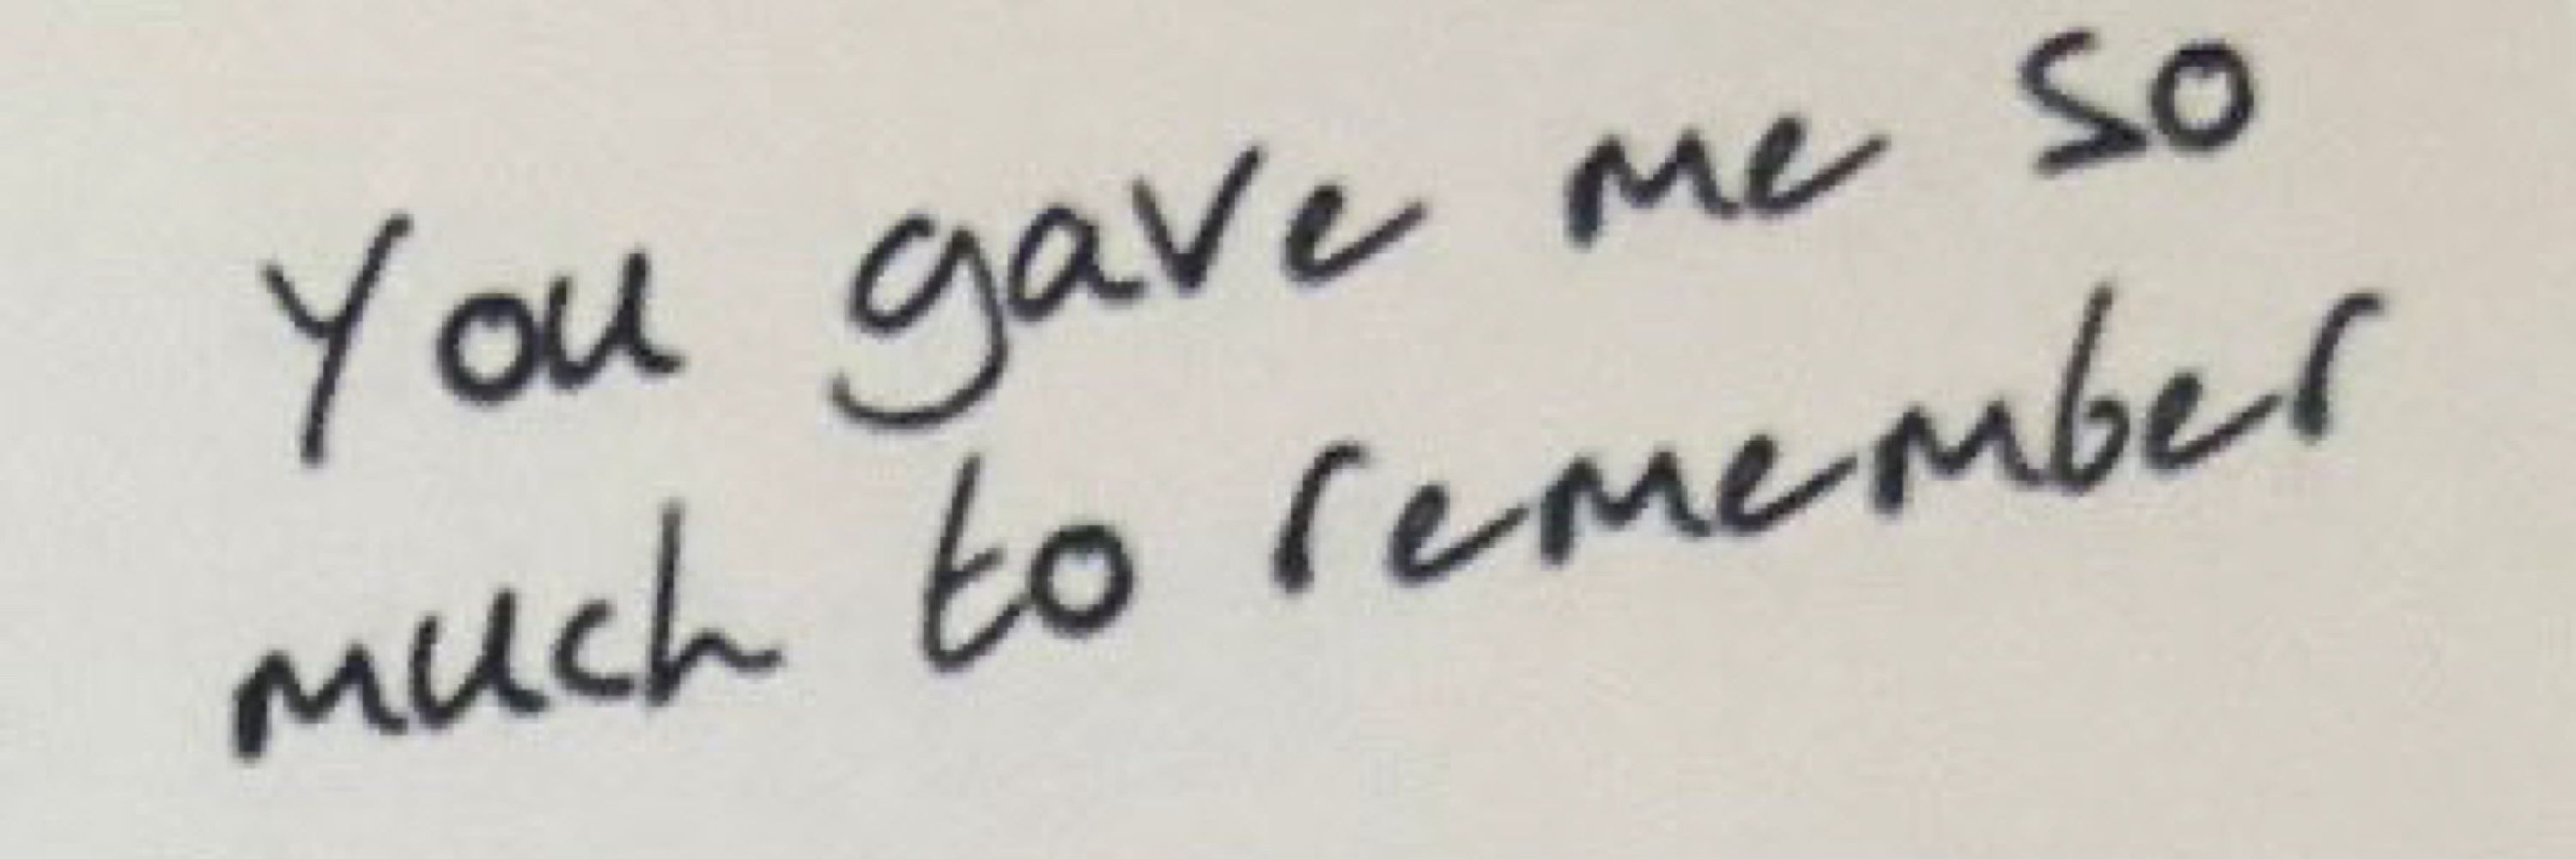 You gave me so
much to remember